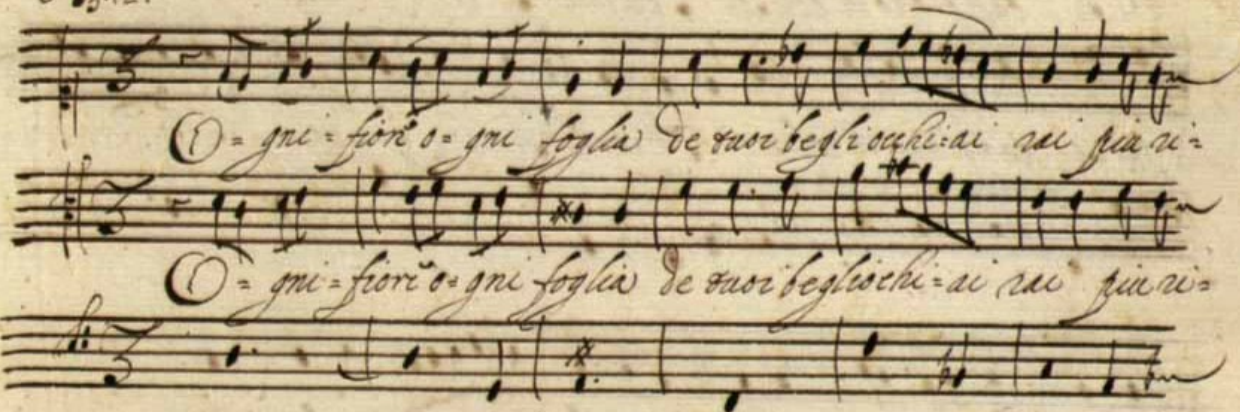 O = gni = fior' o = gni foglia de tuoi begli occhi = ai rai piu ri =
O = gni = fiori o = gni foglia de tuoi begliochi = ai rai piu ri =